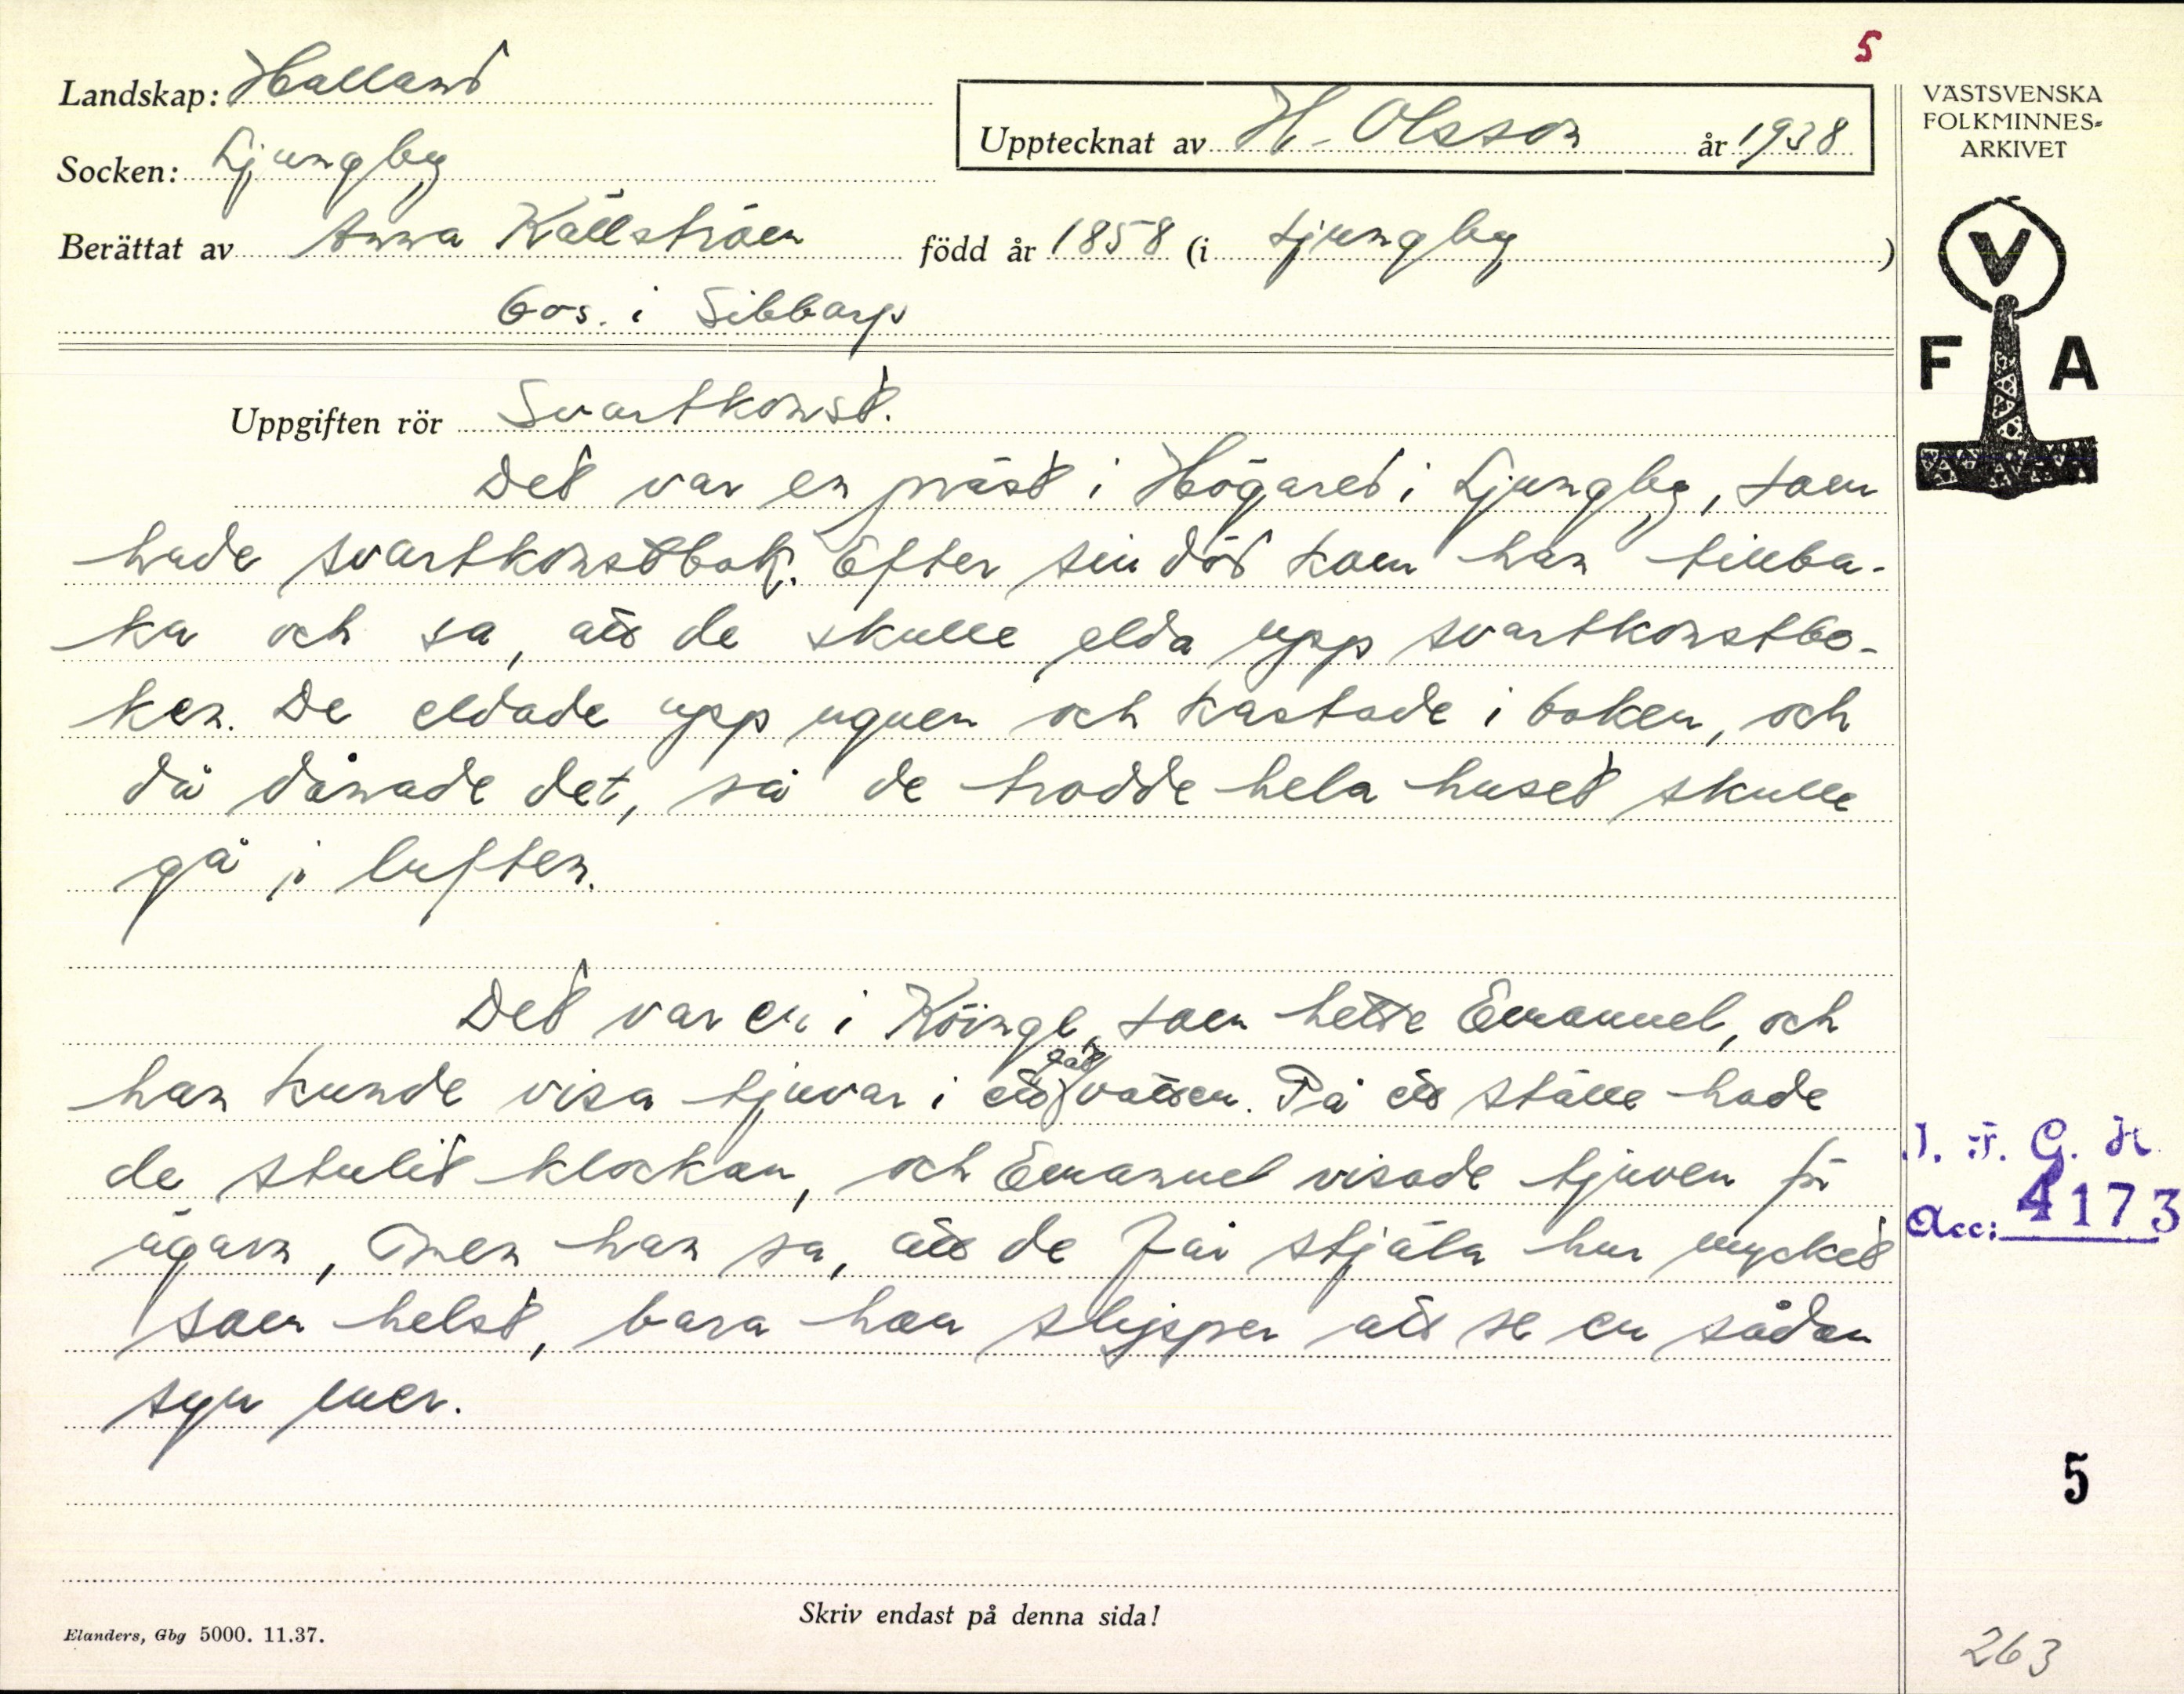 5
Landskap: Halland
Socken: Ljungby
Upptecknat av H. Olsson år 1938
Berättat av Anna Källström född år 1858 (i Ljungby)
bos. i Sibbarp
VÄSTSVENSKA
FOLKMINNES=
ARKIVET
V
F A
Uppgiften rör Svartkonst.
Det var en präst i Högared i Ljungby, som
hade svartkonstbok. Efter sin död kom han tillba-
ka och sa, att de skulle elda upp svartkonstbo-
ken. De eldade upp ugnen och kastade i boken, och
då dånade det, så de trodde hela huset skulle
gå i luften.
Det var en i Köinge, som hette Emanuel, och
han kunde visa tjuvar i ett vatten. På ett ställe hade
de stulit klockan, och Emanuel visade tjuven för
ägarn, men han sa, att de får stjäla hur mycket
som helst, bara han slipper att se en sådan
syn mer.
I. F. G. H.
Acc: 4173
5
Skriv endast på denna sida!
Elanders, Gbg 5000. 11.37.
263